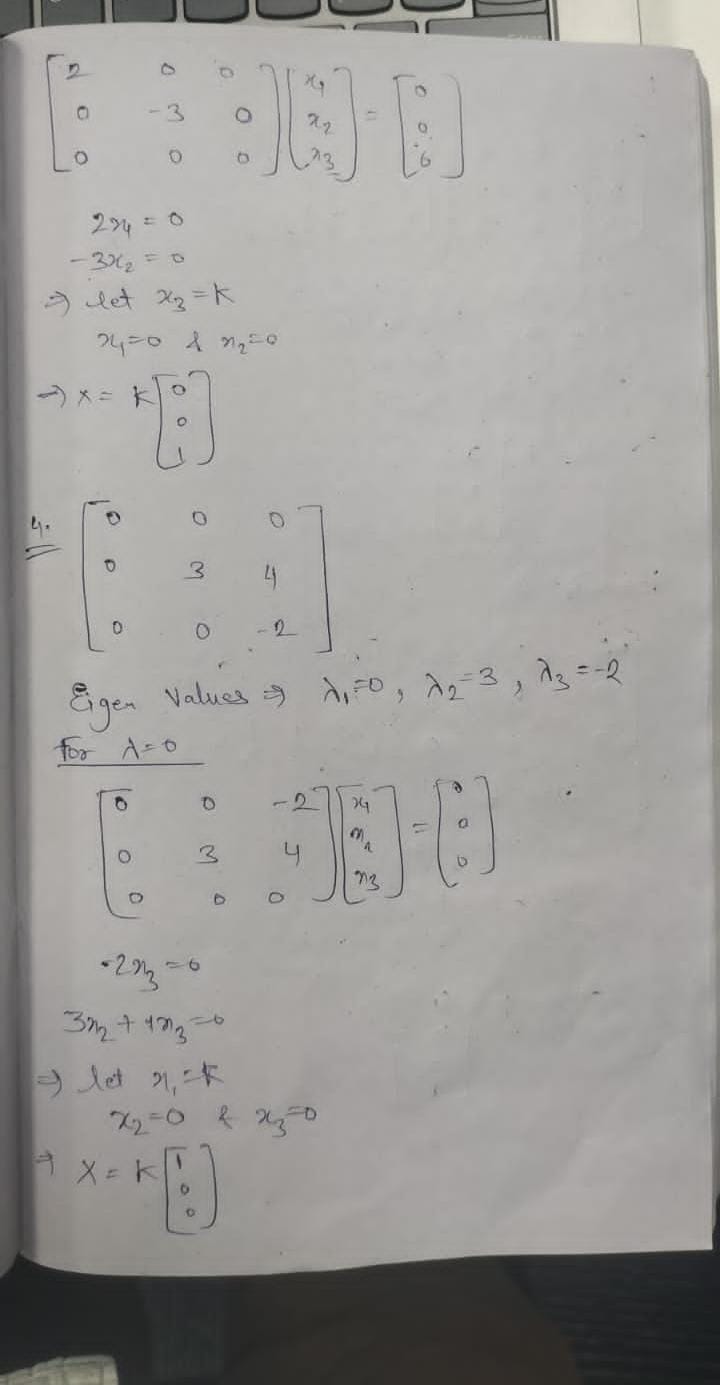 [2 0 0] [x1] = [0]
[0 -3 0] [x2] [0]
[0 0 0] [x3] [0]
2x1 = 0
-3x2 = 0
⇒ let x3 = K
x1=0 & x2=0
⇒ X = K [0]
[0]
[1]
4. [0 0 0]
[0 3 4]
[0 0 -2]
Eigen Values ⇒ λ1=0, λ2=3, λ3=-2
For λ=0
[0 0 -2] [x1] = [0]
[0 3 4] [x2] [0]
[0 0 0] [x3] [0]
-2x3 = 0
3x2 + 4x3 = 0
⇒ let x1 = K
x2=0 & x3=0
⇒ X = K [1]
[0]
[0]